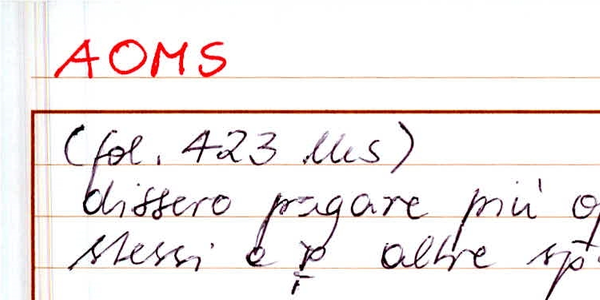 AOMS
(fol. 423 Ms)
dissero pagare più
stessi e p altre